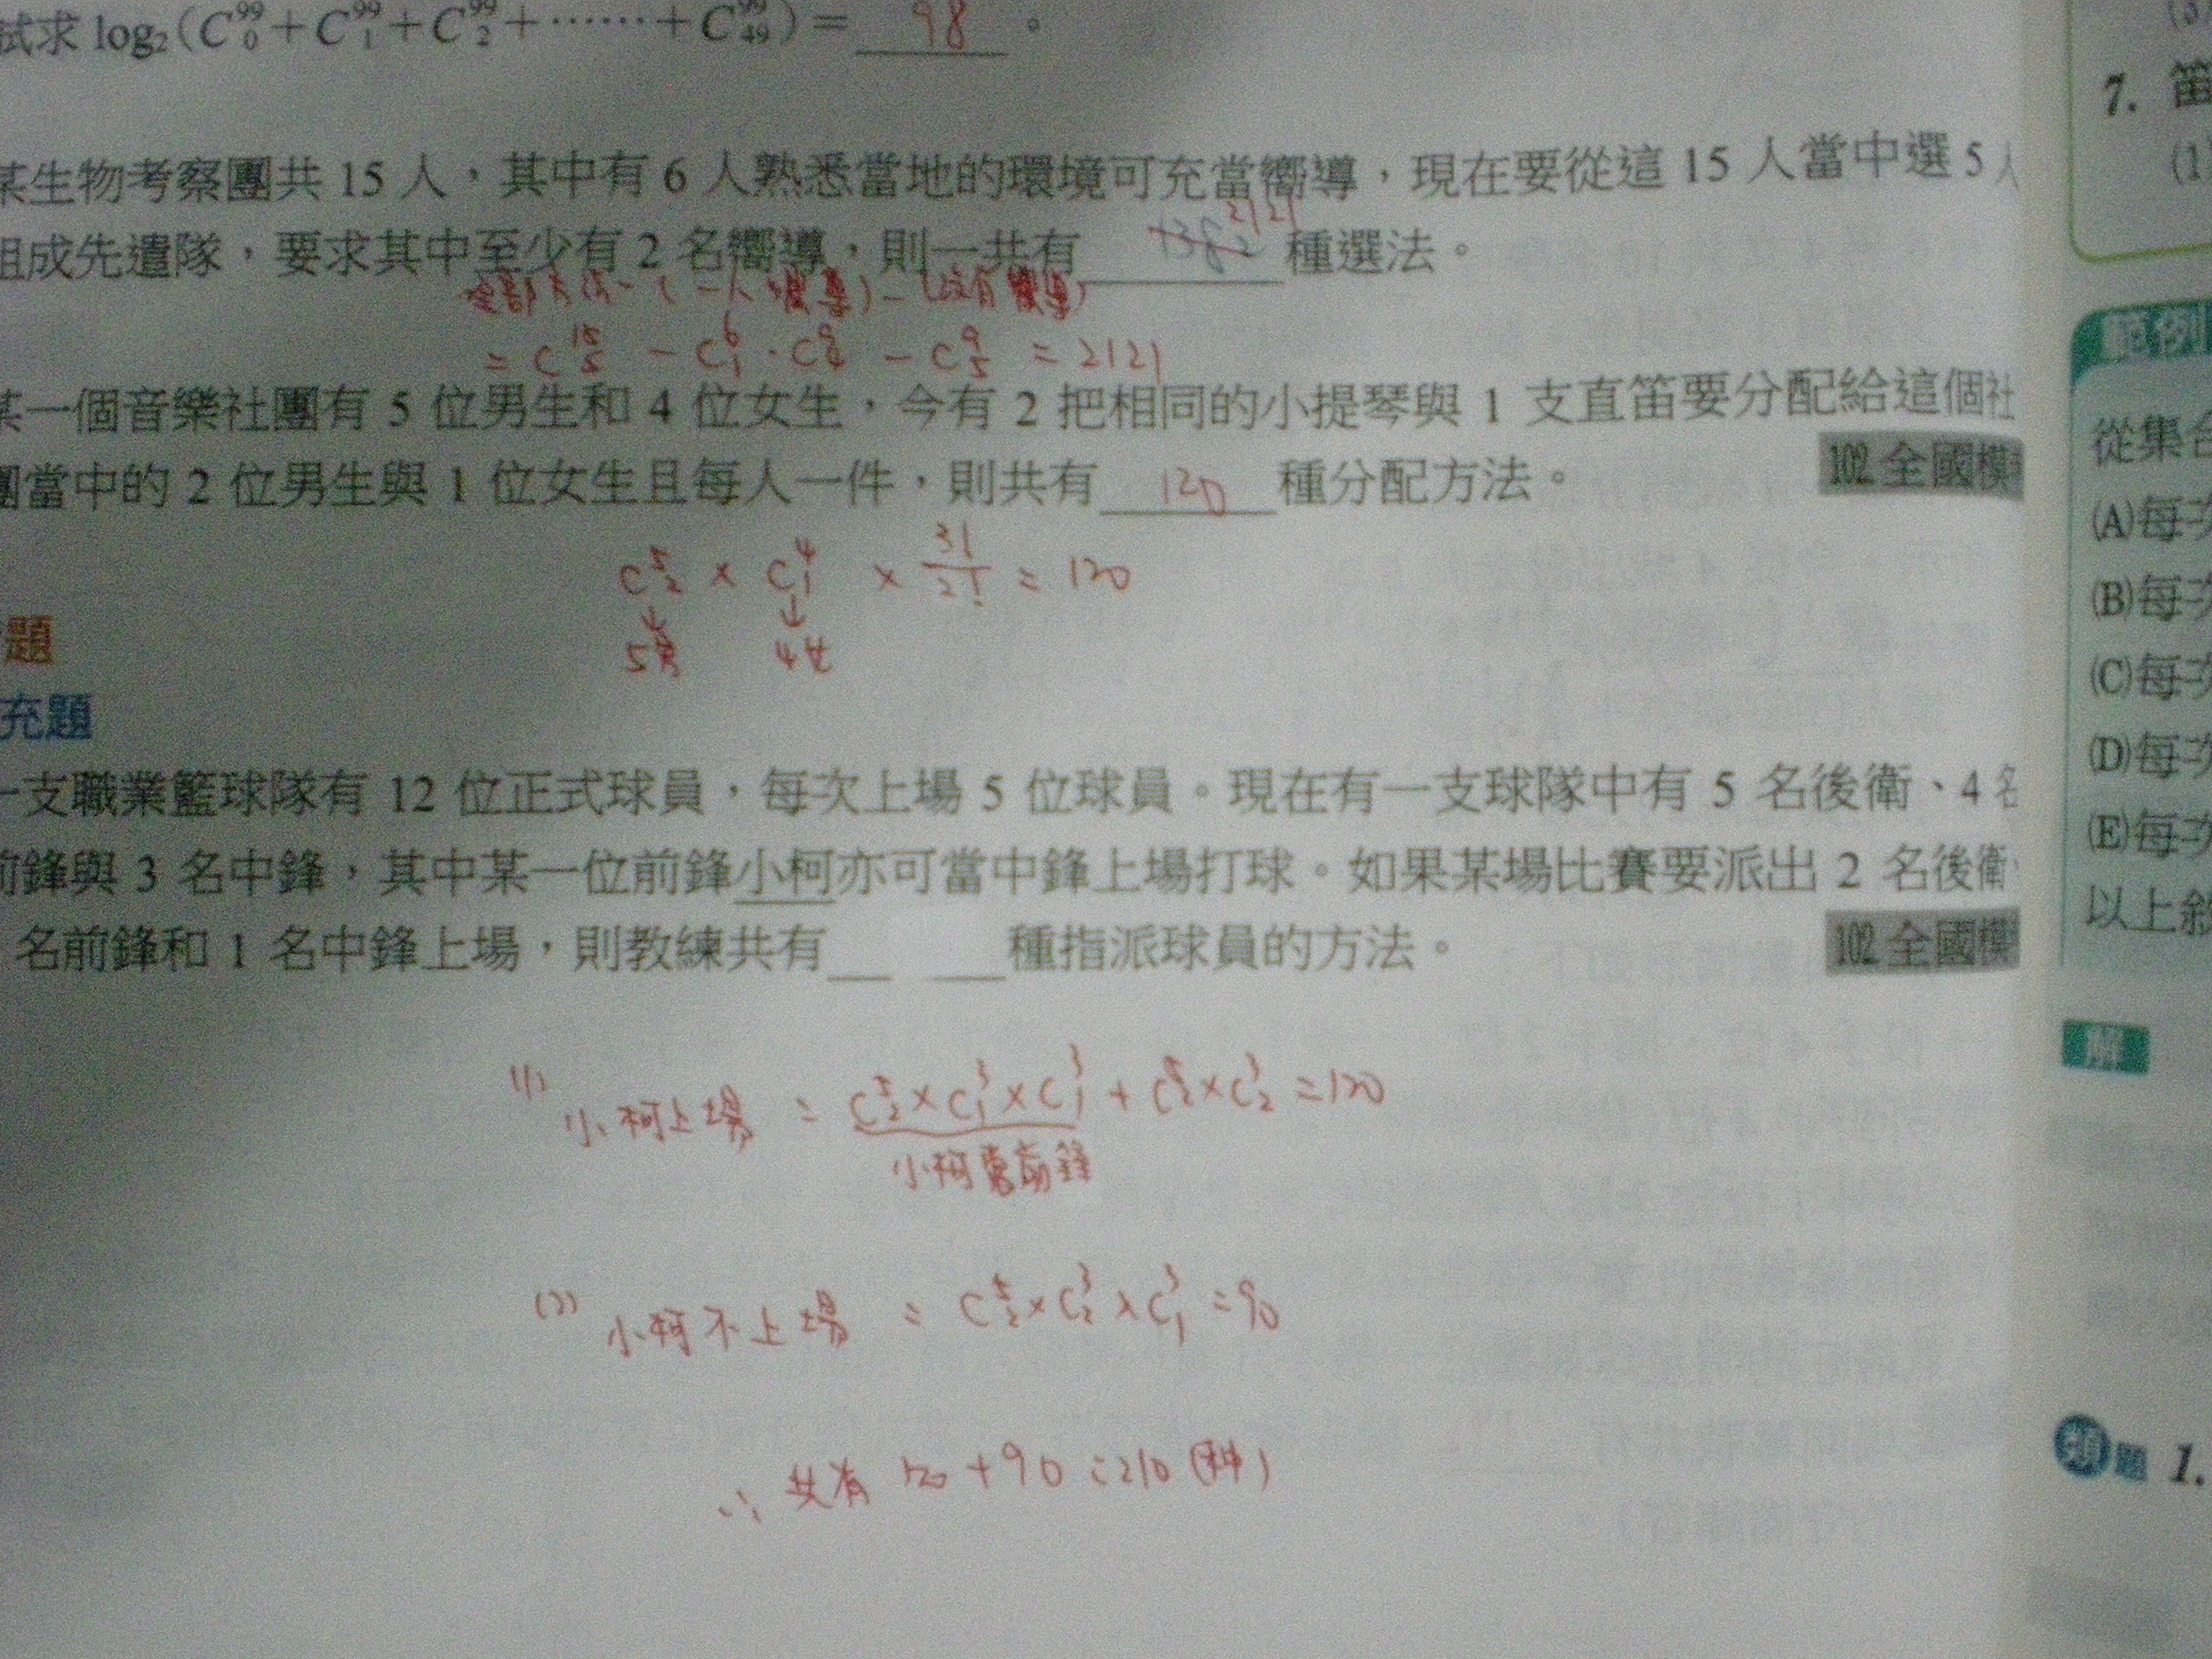 試求 log₂(C⁹⁹₀+C⁹⁹₁+C⁹⁹₂+⋯⋯+C⁹⁹₄₉)= 98 。
某生物考察團共 15 人,其中有 6 人熟悉當地的環境可充當嚮導,現在要從這 15 人當中選 5 人
組成先遣隊,要求其中至少有 2 名嚮導,則一共有 1382 2121 種選法。
全部方法-(一人嚮導)-(沒有嚮導)
= C¹⁵₅ - C⁶₁·C⁹₄ - C⁹₅ = 2121
某一個音樂社團有 5 位男生和 4 位女生,今有 2 把相同的小提琴與 1 支直笛要分配給這個社
團當中的 2 位男生與 1 位女生且每人一件,則共有 120 種分配方法。
102 全國模
C⁵₂ × C⁴₁ × 3!/2! = 120
↓ ↓
5男 4女
題
充題
一支職業籃球隊有 12 位正式球員,每次上場 5 位球員。現在有一支球隊中有 5 名後衛、4 名
前鋒與 3 名中鋒,其中某一位前鋒小柯亦可當中鋒上場打球。如果某場比賽要派出 2 名後衛、
名前鋒和 1 名中鋒上場,則教練共有 種指派球員的方法。
102 全國模
(1) 小柯上場 = C⁵₂×C³₁×C³₁ + C⁵₂×C³₂ = 120
小柯當前鋒
(2) 小柯不上場 = C⁵₂×C³₂×C³₁ = 90
∴ 共有 120 + 90 = 210 (种)
7. 笛
(1)
範例
從集合
(A)每次
(B)每次
(C)每次
(D)每次
(E)每次
以上敘
解
類題 1.